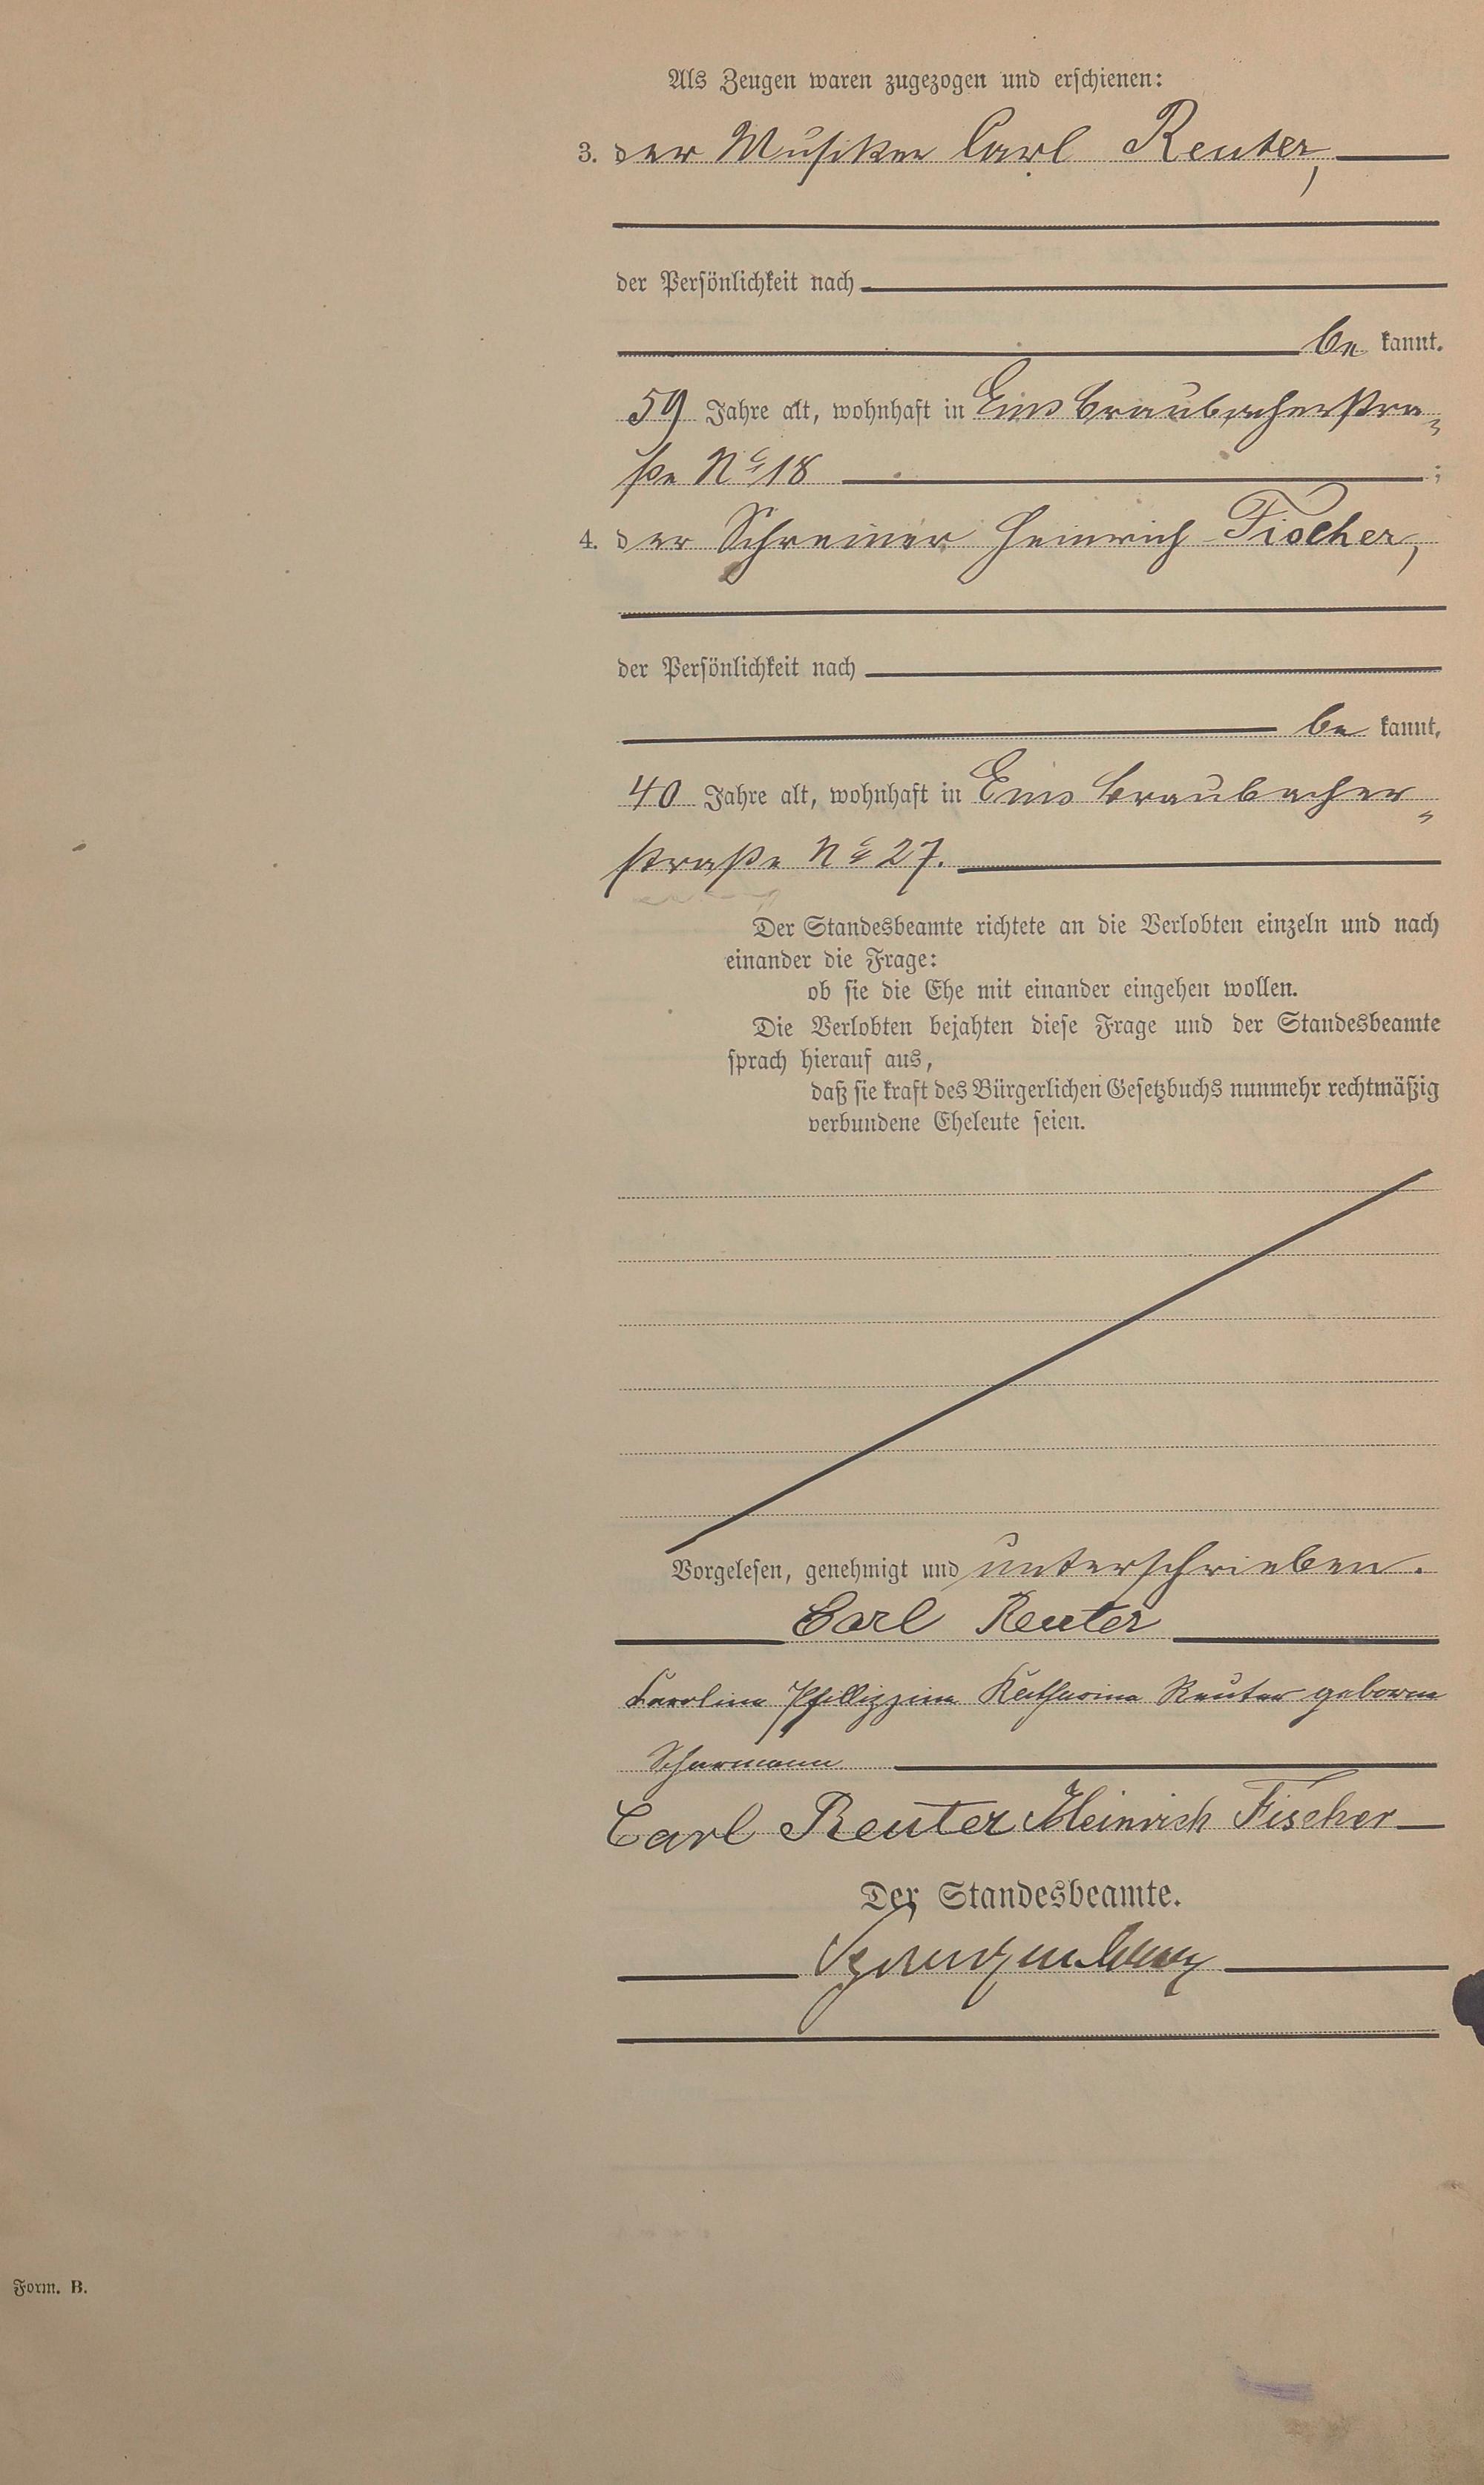 Als Zeugen waren zugezogen und erschienen:
3. der Musiker Carl Reuter,
der Persönlichkeit nach
be kannt.
59 Jahre alt, wohnhaft in Ems Braubacherstra=
ße No 18 ;
4. der Schreiner Heinrich Fischer,
der Persönlichkeit nach
be kannt,
40 Jahre alt, wohnhaft in Ems Braubacher=
straße No 27.
Der Standesbeamte richtete an die Verlobten einzeln und nach
einander die Frage:
ob sie die Ehe mit einander eingehen wollen.
Die Verlobten bejahten diese Frage und der Standesbeamte
sprach hierauf aus,
daß sie kraft des Bürgerlichen Gesetzbuchs nunmehr rechtmäßig
verbundene Eheleute seien.
Vorgelesen, genehmigt und unterschrieben.
Carl Reuter
Karoline Katharina Reuter geborene
Carl Reuter Heinrich Fischer
Der Standesbeamte.
Form. B.